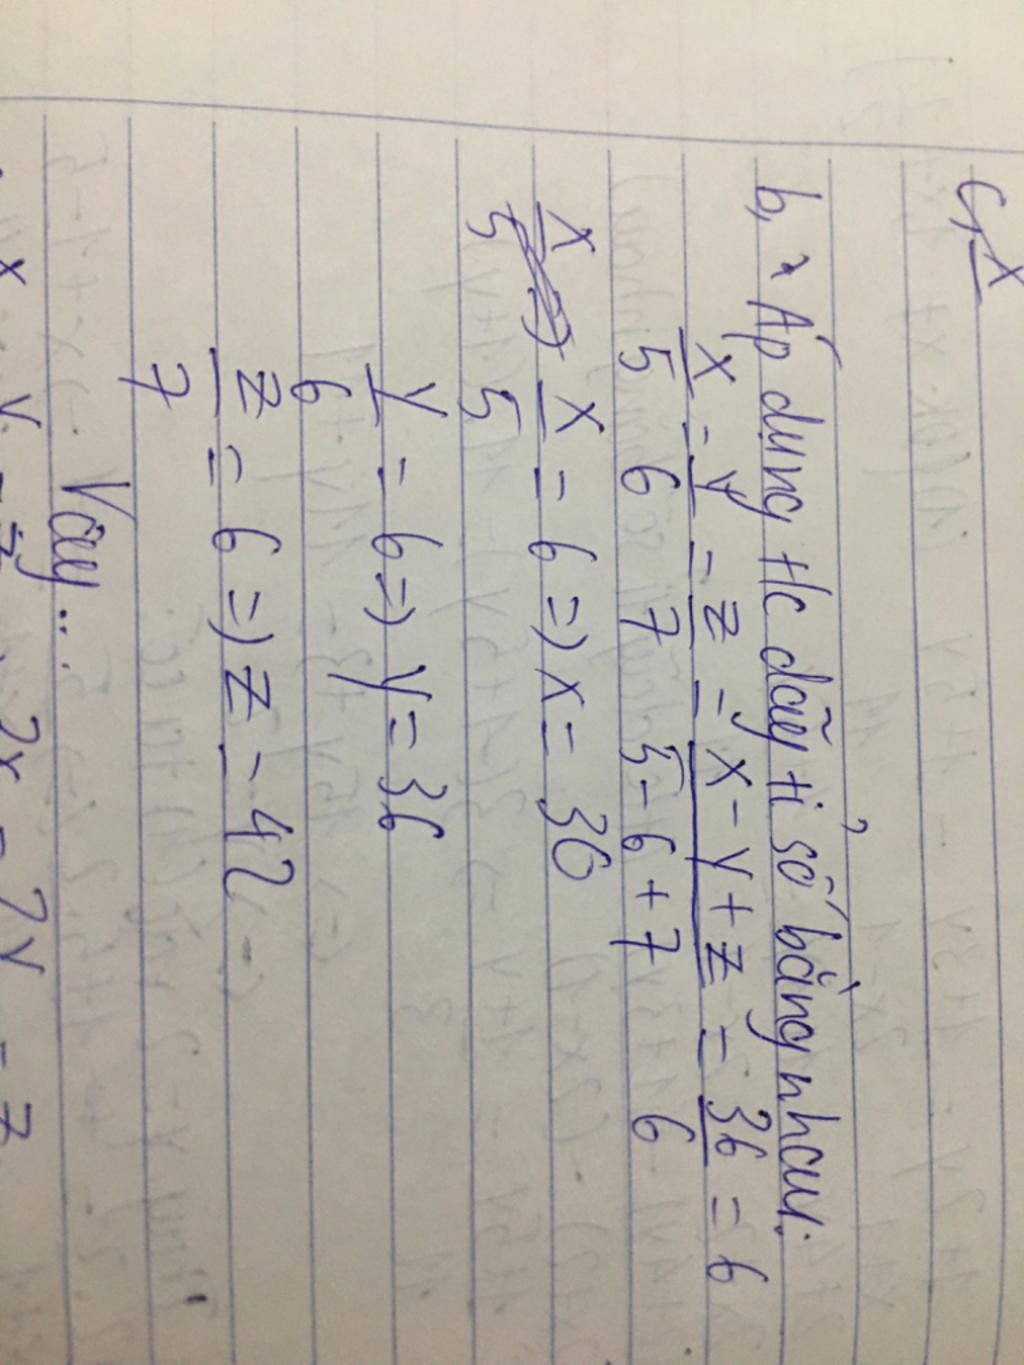 c, x
b, * Áp dụng t/c dãy tỉ số bằng nhau:
x/5 = y/6 = z/7 = x - y + z/5 - 6 + 7 = 36/6 = 6
x/5 => x/5 = 6 => x = 30
y/6 = 6 => y = 36
z/7 = 6 => z = 42
Vậy...